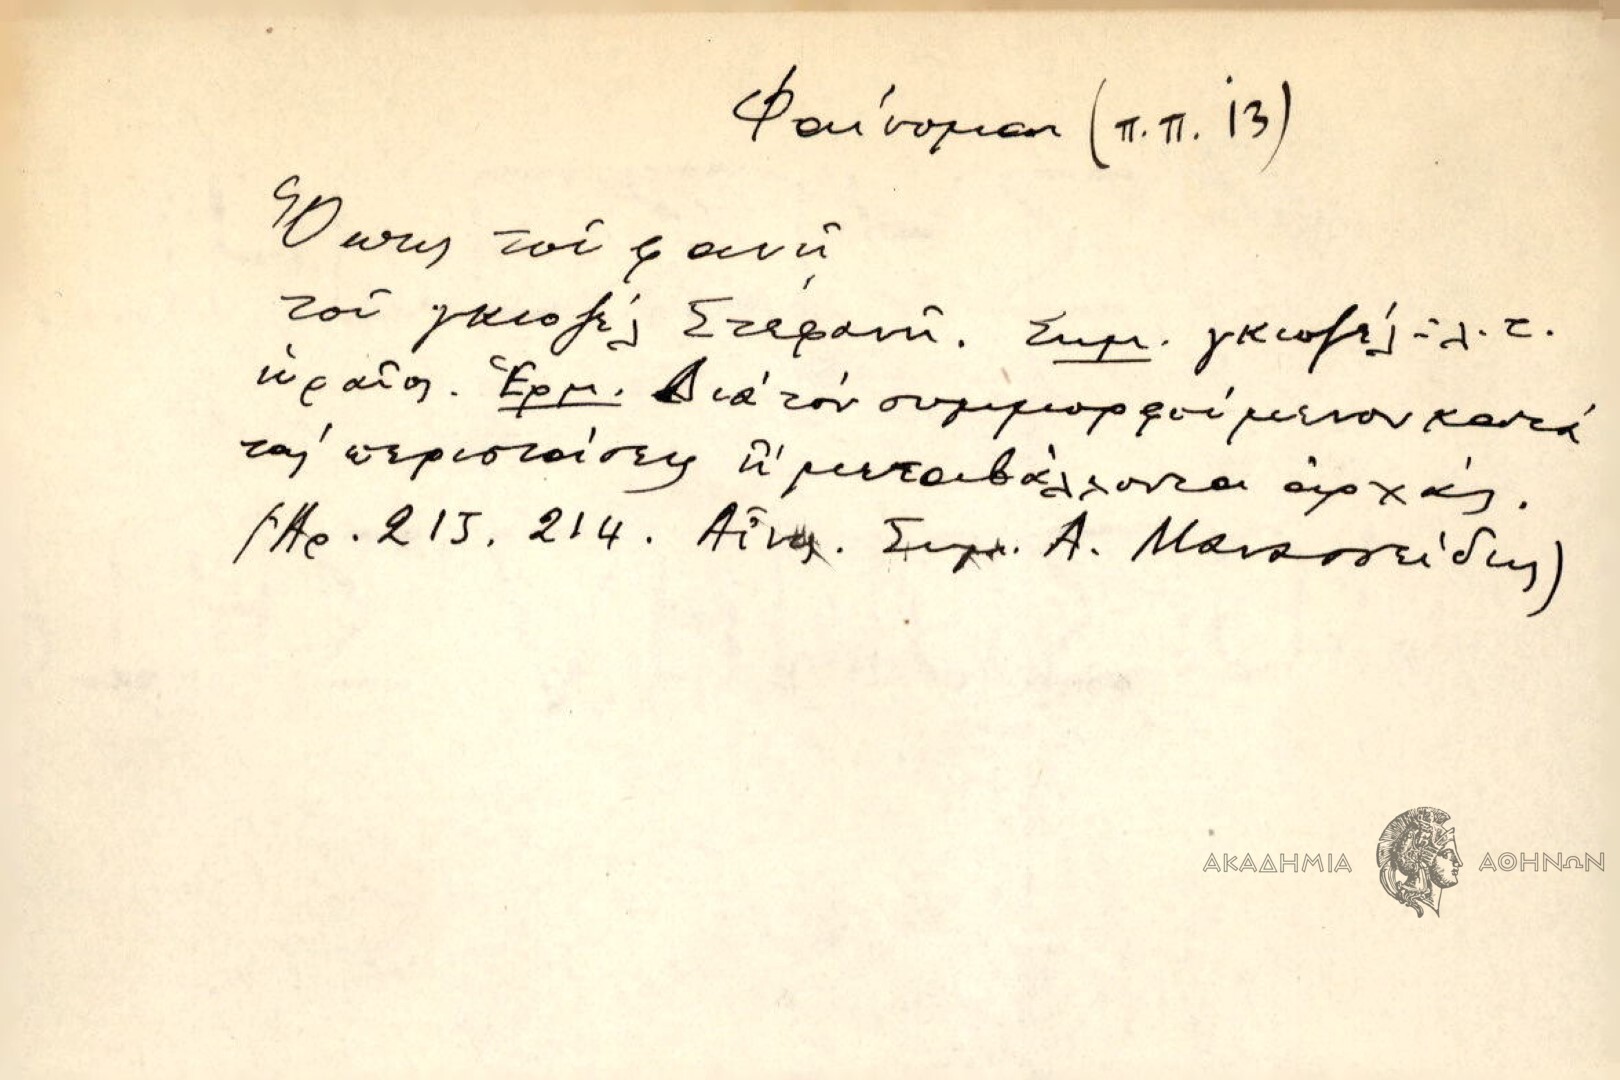 Φαίνομαι (π.π. 13)
Ὅπως τοῦ φανῇ
τοῦ γκιοζέλ Στεφανῆ. Σημ. γκιοζέλ - λ. τ.
ὡραῖος. Ἑρμ. Διὰ τὸν συμμορφούμενον κατὰ
τὰς περιστάσεις ἢ μεταβάλλοντα ἀρχάς.
(Ἀρ. 215. 214. Αἶνος. Σημ. Α. Μανασσείδης)
ΑΚΑΔΗΜΙΑ ΑΘΗΝΩΝ